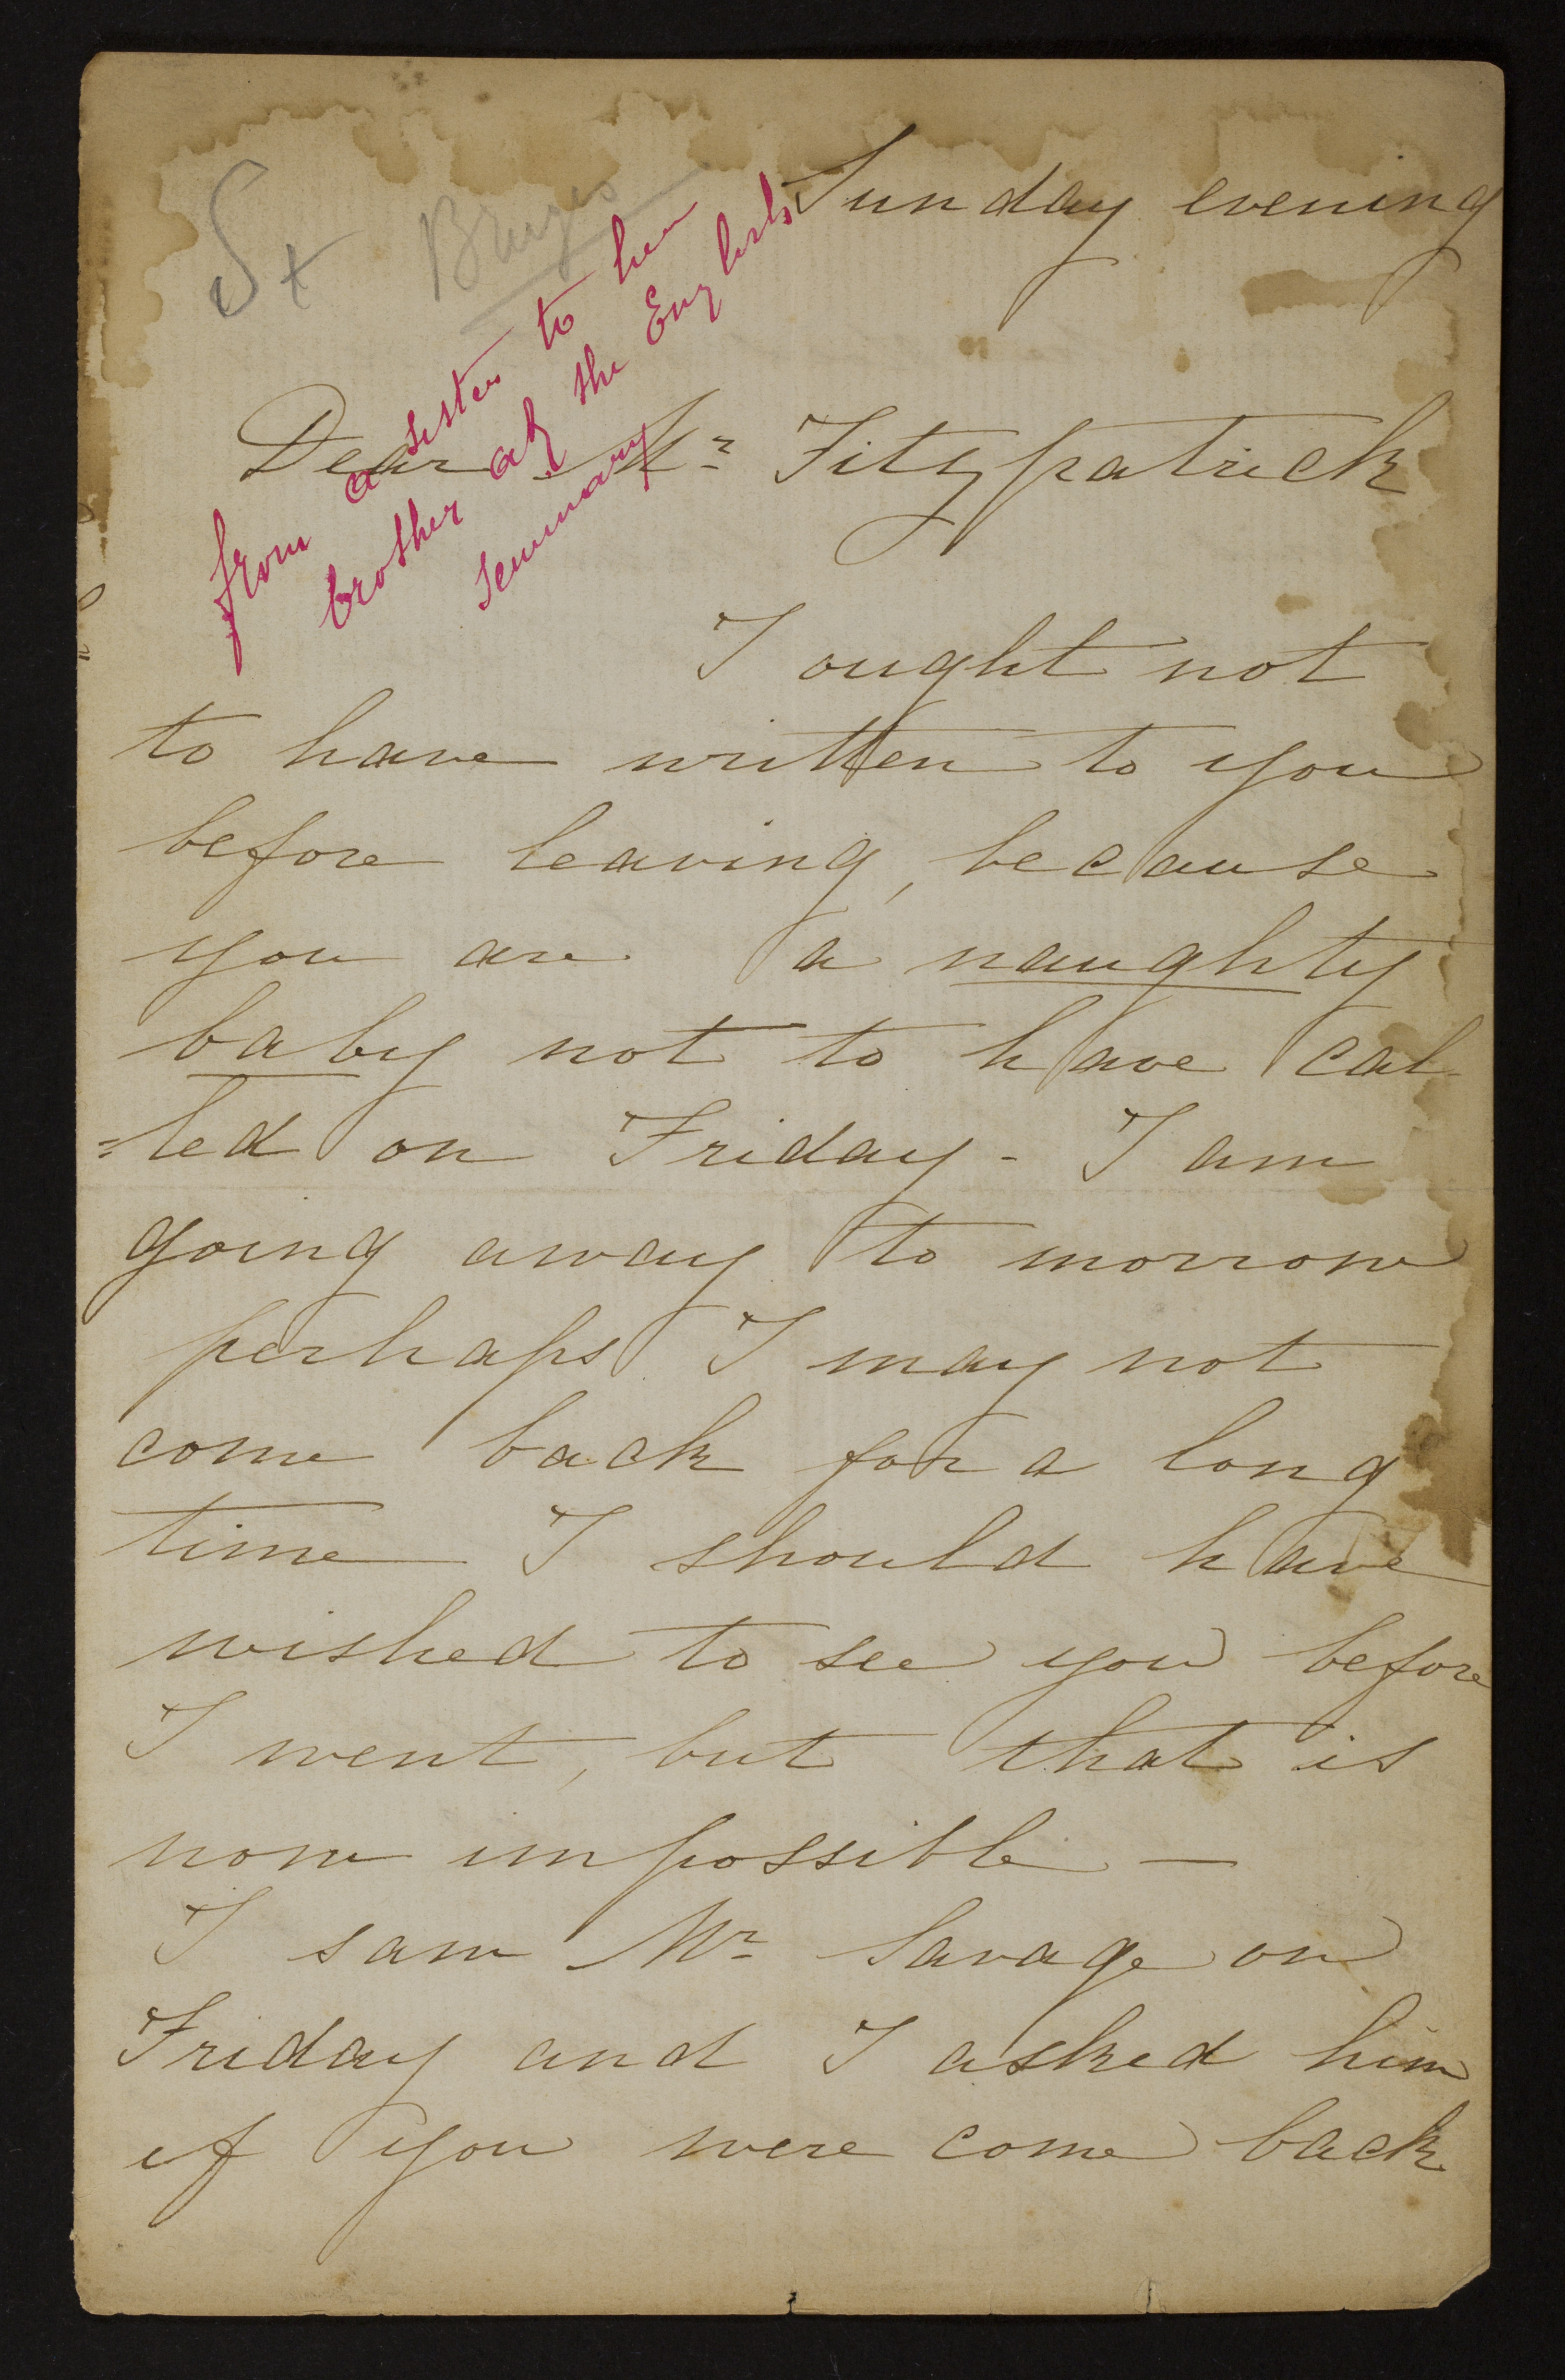 St Bruges
Sunday evening
from a sister to her
brother at the English
Seminary
Dear Mr Fitzpatrick
I ought not
to have written to you
before leaving, because
you are a naughty
baby not to have cal-
=led on Friday - I am
going away to morrow
perhaps I may not
come back for a long
time I should have
wished to see you before
I went, but that is
now impossible —
I saw Mr Savage on
Friday and I asked him
if you were come back